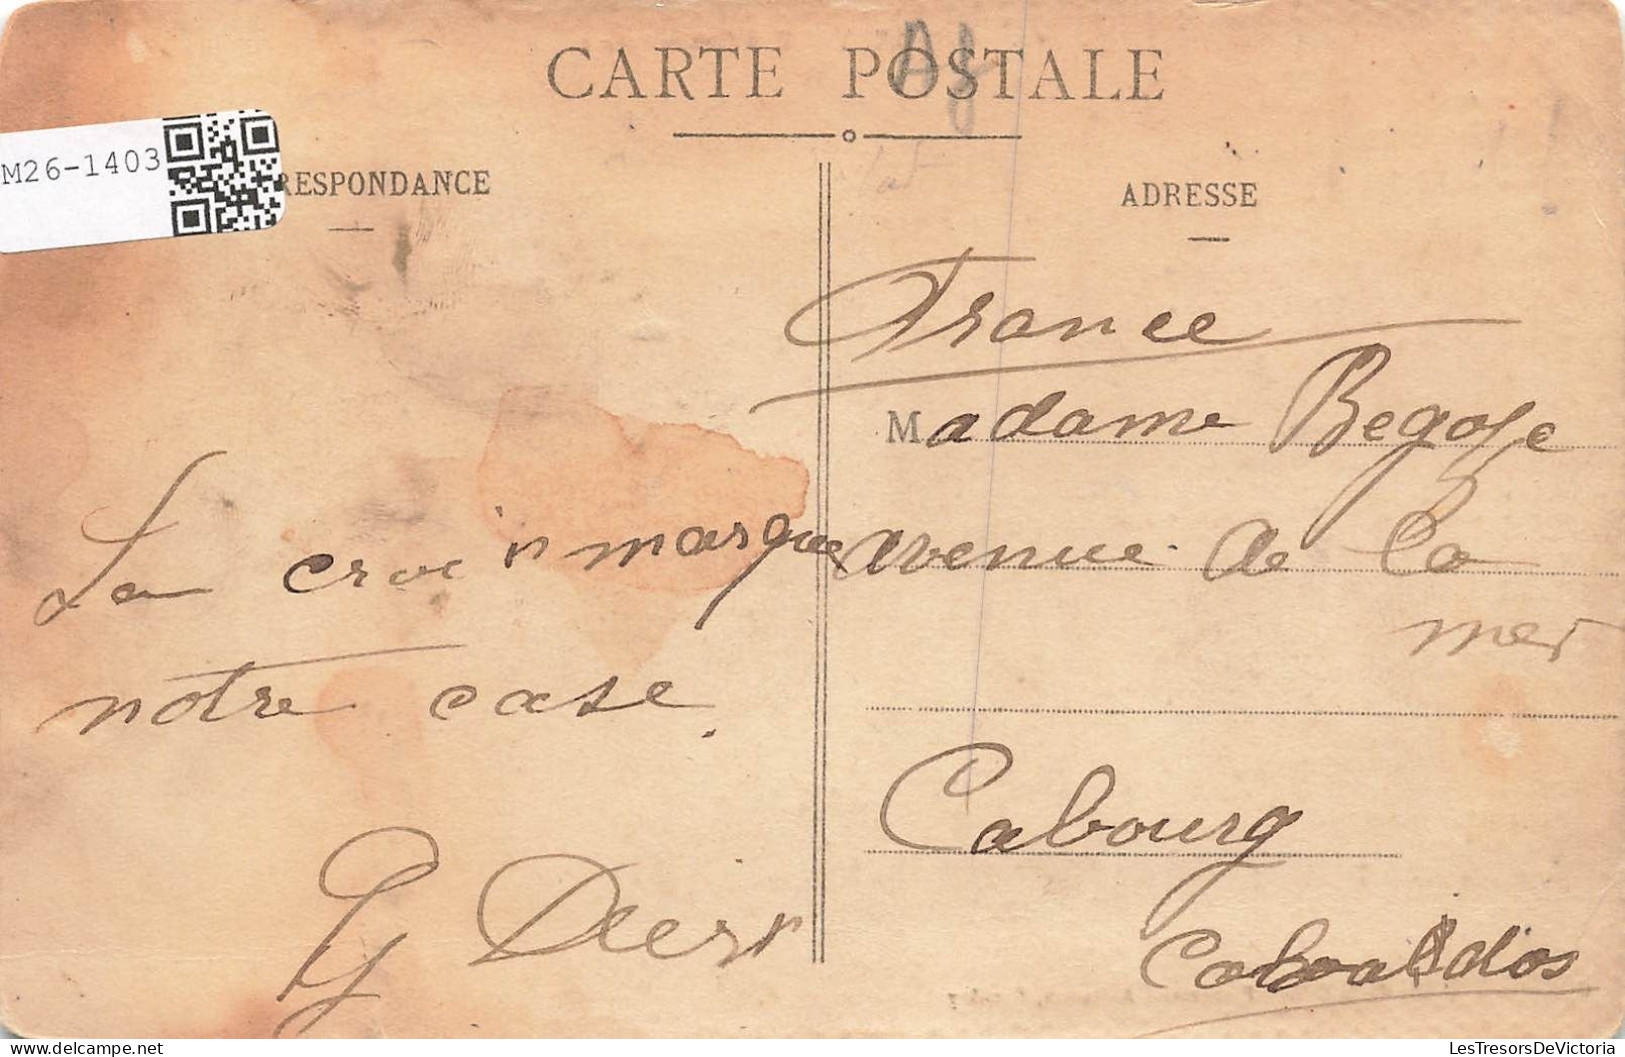 CARTE POSTALE
M26-1403
RESPONDANCE
ADRESSE
France
Madame Begose
avenue de la
mer
Cabourg
Calvados
La croix marque
notre case.
G
LesTresorsDeVictoria